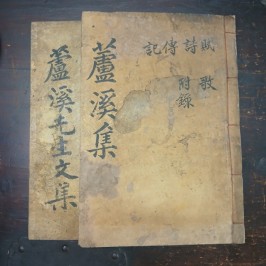 蘆溪集
賦詩傳記
歌
附錄
蘆溪先生文集